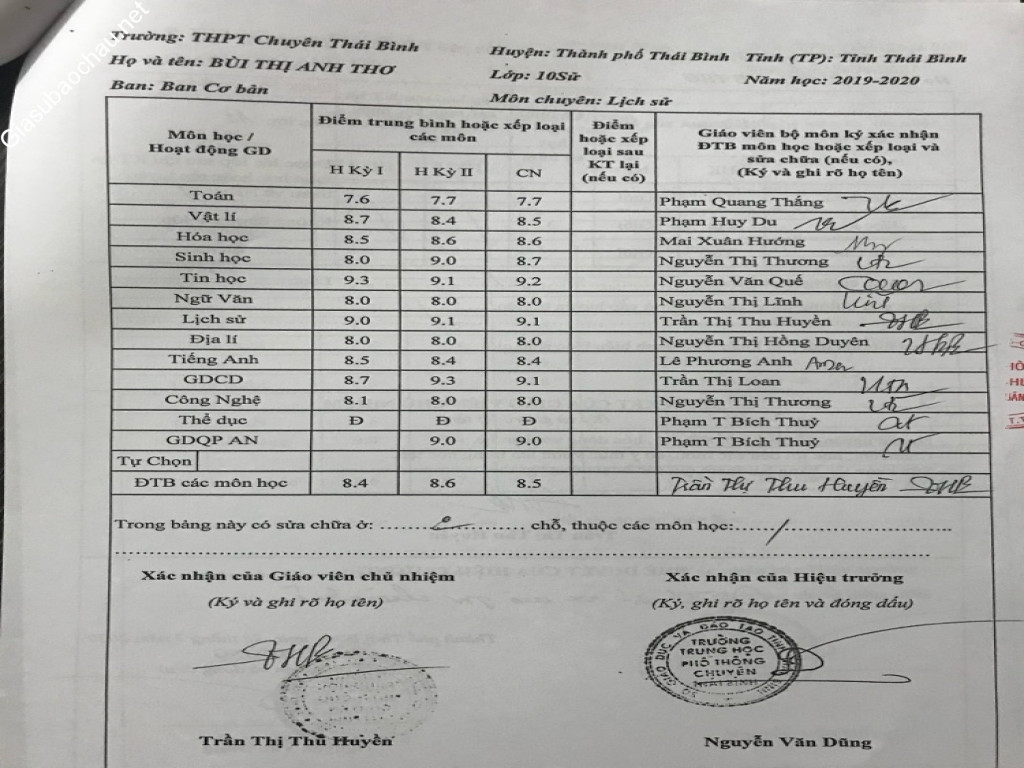 Giasubaochau.net
Trường: THPT Chuyên Thái Bình Huyện: Thành phố Thái Bình Tỉnh (TP): Tỉnh Thái Bình
Họ và tên: BÙI THỊ ANH THƠ Lớp: 10Sử Năm học: 2019-2020
Ban: Ban Cơ bản Môn chuyên: Lịch sử
Môn học / Hoạt động GD Điểm trung bình hoặc xếp loại các môn Điểm hoặc xếp loại sau KT lại (nếu có) Giáo viên bộ môn ký xác nhận ĐTB môn học hoặc xếp loại và sửa chữa (nếu có), (Ký và ghi rõ họ tên)
H Kỳ I H Kỳ II CN
Toán 7.6 7.7 7.7 Phạm Quang Thắng
Vật lí 8.7 8.4 8.5 Phạm Huy Du
Hóa học 8.5 8.6 8.6 Mai Xuân Hướng
Sinh học 8.0 9.0 8.7 Nguyễn Thị Thương
Tin học 9.3 9.1 9.2 Nguyễn Văn Quế
Ngữ Văn 8.0 8.0 8.0 Nguyễn Thị Lĩnh
Lịch sử 9.0 9.1 9.1 Trần Thị Thu Huyền
Địa lí 8.0 8.0 8.0 Nguyễn Thị Hồng Duyên
Tiếng Anh 8.5 8.4 8.4 Lê Phương Anh
GDCD 8.7 9.3 9.1 Trần Thị Loan
Công Nghệ 8.1 8.0 8.0 Nguyễn Thị Thương
Thể dục Đ Đ Đ Phạm T Bích Thuỷ
GDQP AN 9.0 9.0 Phạm T Bích Thuỷ
Tự Chọn
ĐTB các môn học 8.4 8.6 8.5 Trần Thị Thu Huyền
Trong bảng này có sửa chữa ở: ........................ chỗ, thuộc các môn học:....../............................
Xác nhận của Giáo viên chủ nhiệm Xác nhận của Hiệu trưởng
(Ký và ghi rõ họ tên) (Ký, ghi rõ họ tên và đóng dấu)
TRƯỜNG
TRUNG HỌC
PHỔ THÔNG
CHUYÊN
THÁI BÌNH
Trần Thị Thu Huyền Nguyễn Văn Dũng